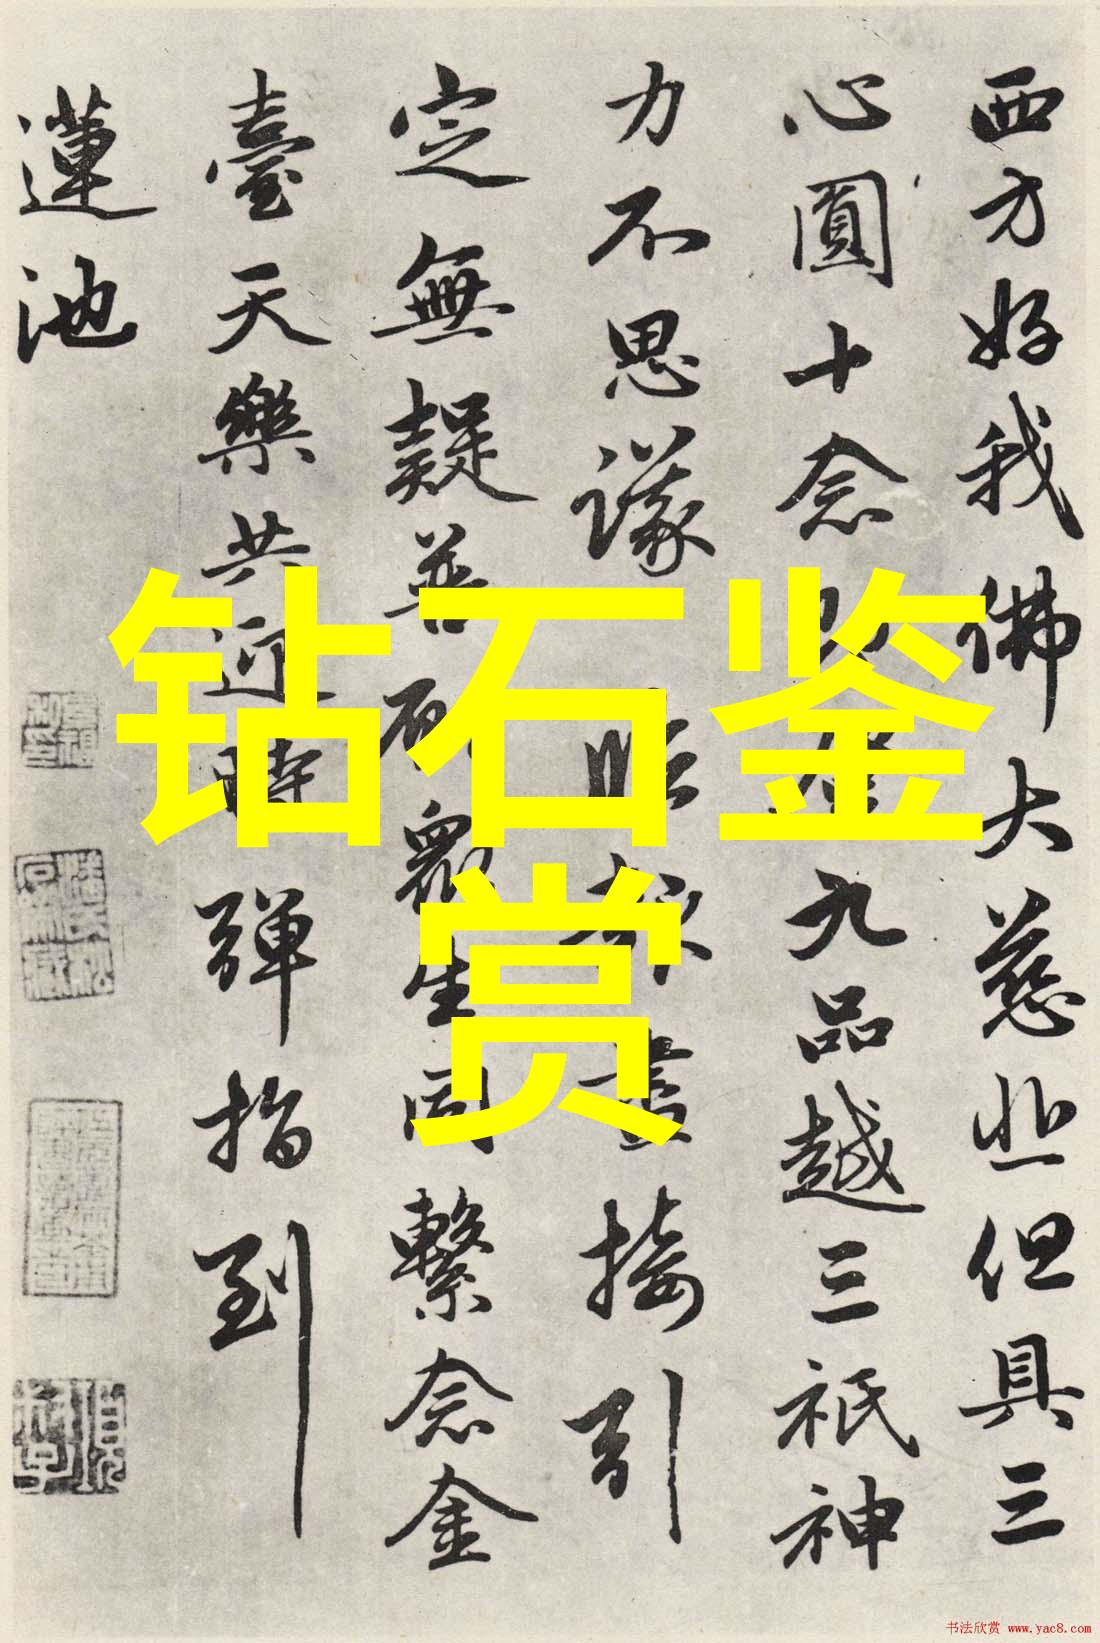 西方好我佛大慈悲但具三
心圓十念九品越三祇神
力不思議臨 盡接引
定無疑普願衆生同繫念金
臺天樂共迎時彈指到
蓮池
钻石鉴
赏
书法欣赏 www.yac8.com